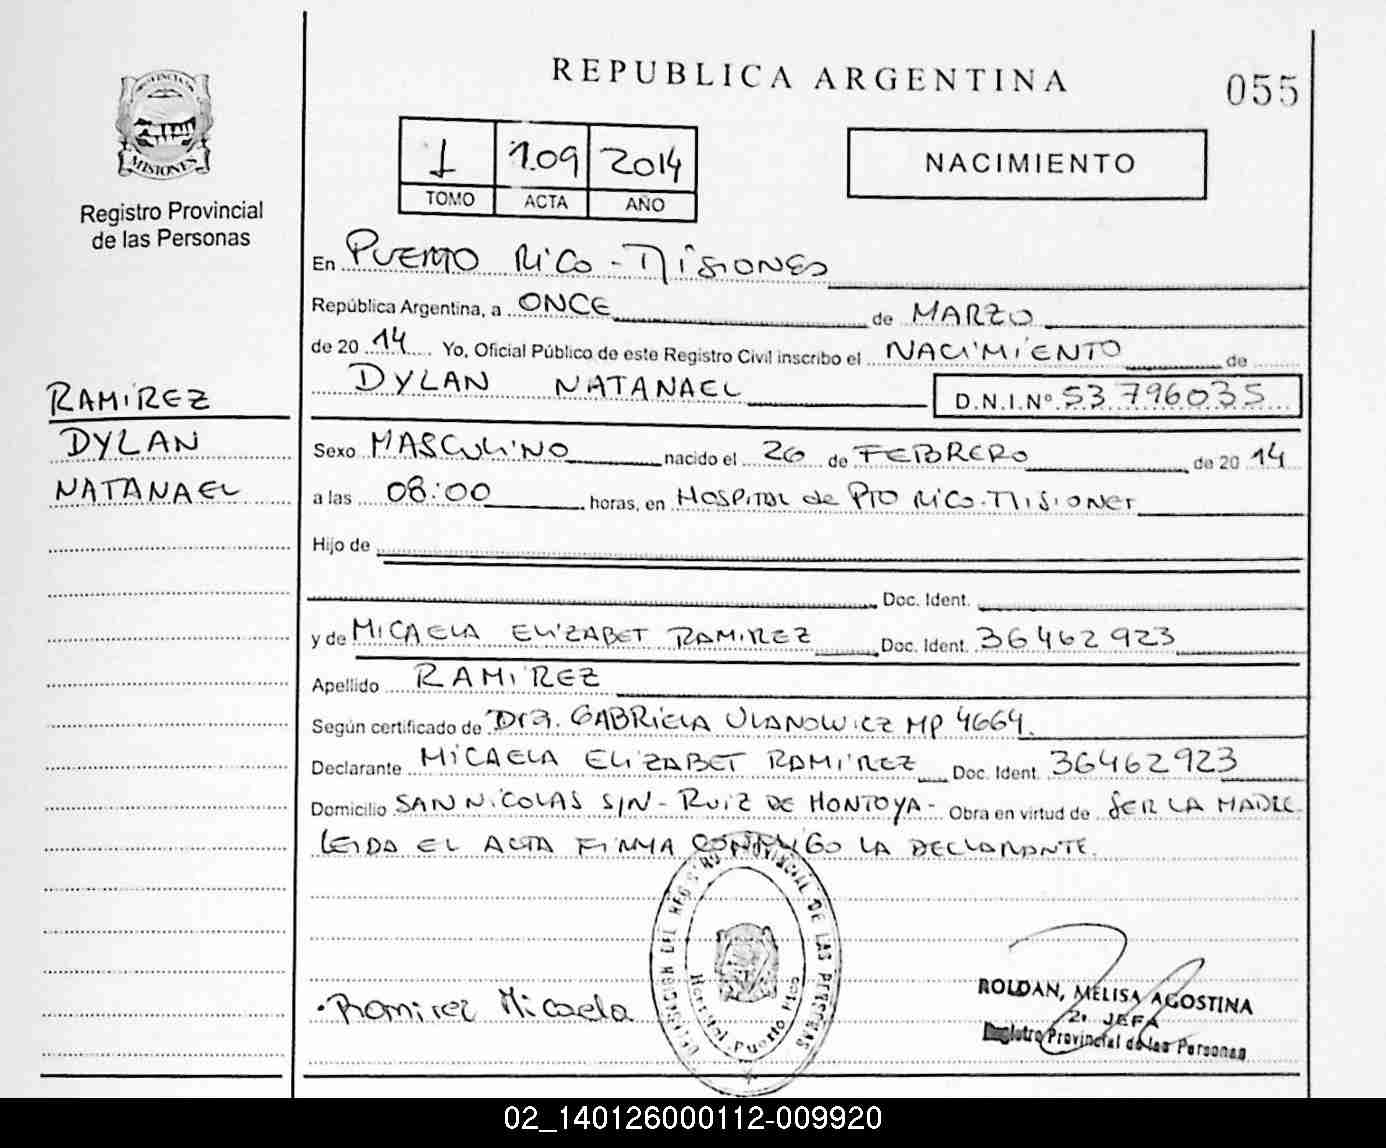 REPUBLICA ARGENTINA
055
PROVINCIA DE
MISIONES
Registro Provincial
de las Personas
1 109 2014
TOMO ACTA AÑO
NACIMIENTO
En PUERTO RICO - MISIONES
República Argentina, a ONCE de MARZO
de 20 14 Yo, Oficial Público de este Registro Civil inscribo el NACIMIENTO de
DYLAN NATANAEL D.N.I.Nº 53 796035
RAMIREZ
DYLAN
NATANAEL
Sexo MASCULINO nacido el 26 de FEBRERO de 20 14
a las 08:00 horas, en HOSPITAL de PTO RICO - MISIONES
Hijo de
Doc. Ident.
y de MICAELA ELIZABET RAMIREZ Doc. Ident. 36462923
Apellido RAMIREZ
Según certificado de Dra. GABRIELA ULANOWICZ MP 4664.
Declarante MICAELA ELIZABET RAMIREZ Doc. Ident. 36462923
Domicilio SAN NICOLAS S/N - RUIZ DE MONTOYA - Obra en virtud de SER LA MADRE.
LEIDA EL ACTA FIRMA CONMIGO LA DECLARANTE.
DELEGACION DEL REGISTRO PROVINCIAL DE LAS PERSONAS
Hospital Puerto Rico
Ramirez Micaela
ROLDAN, MELISA AGOSTINA
2º JEFA
Registro Provincial de las Personas
02_140126000112-009920